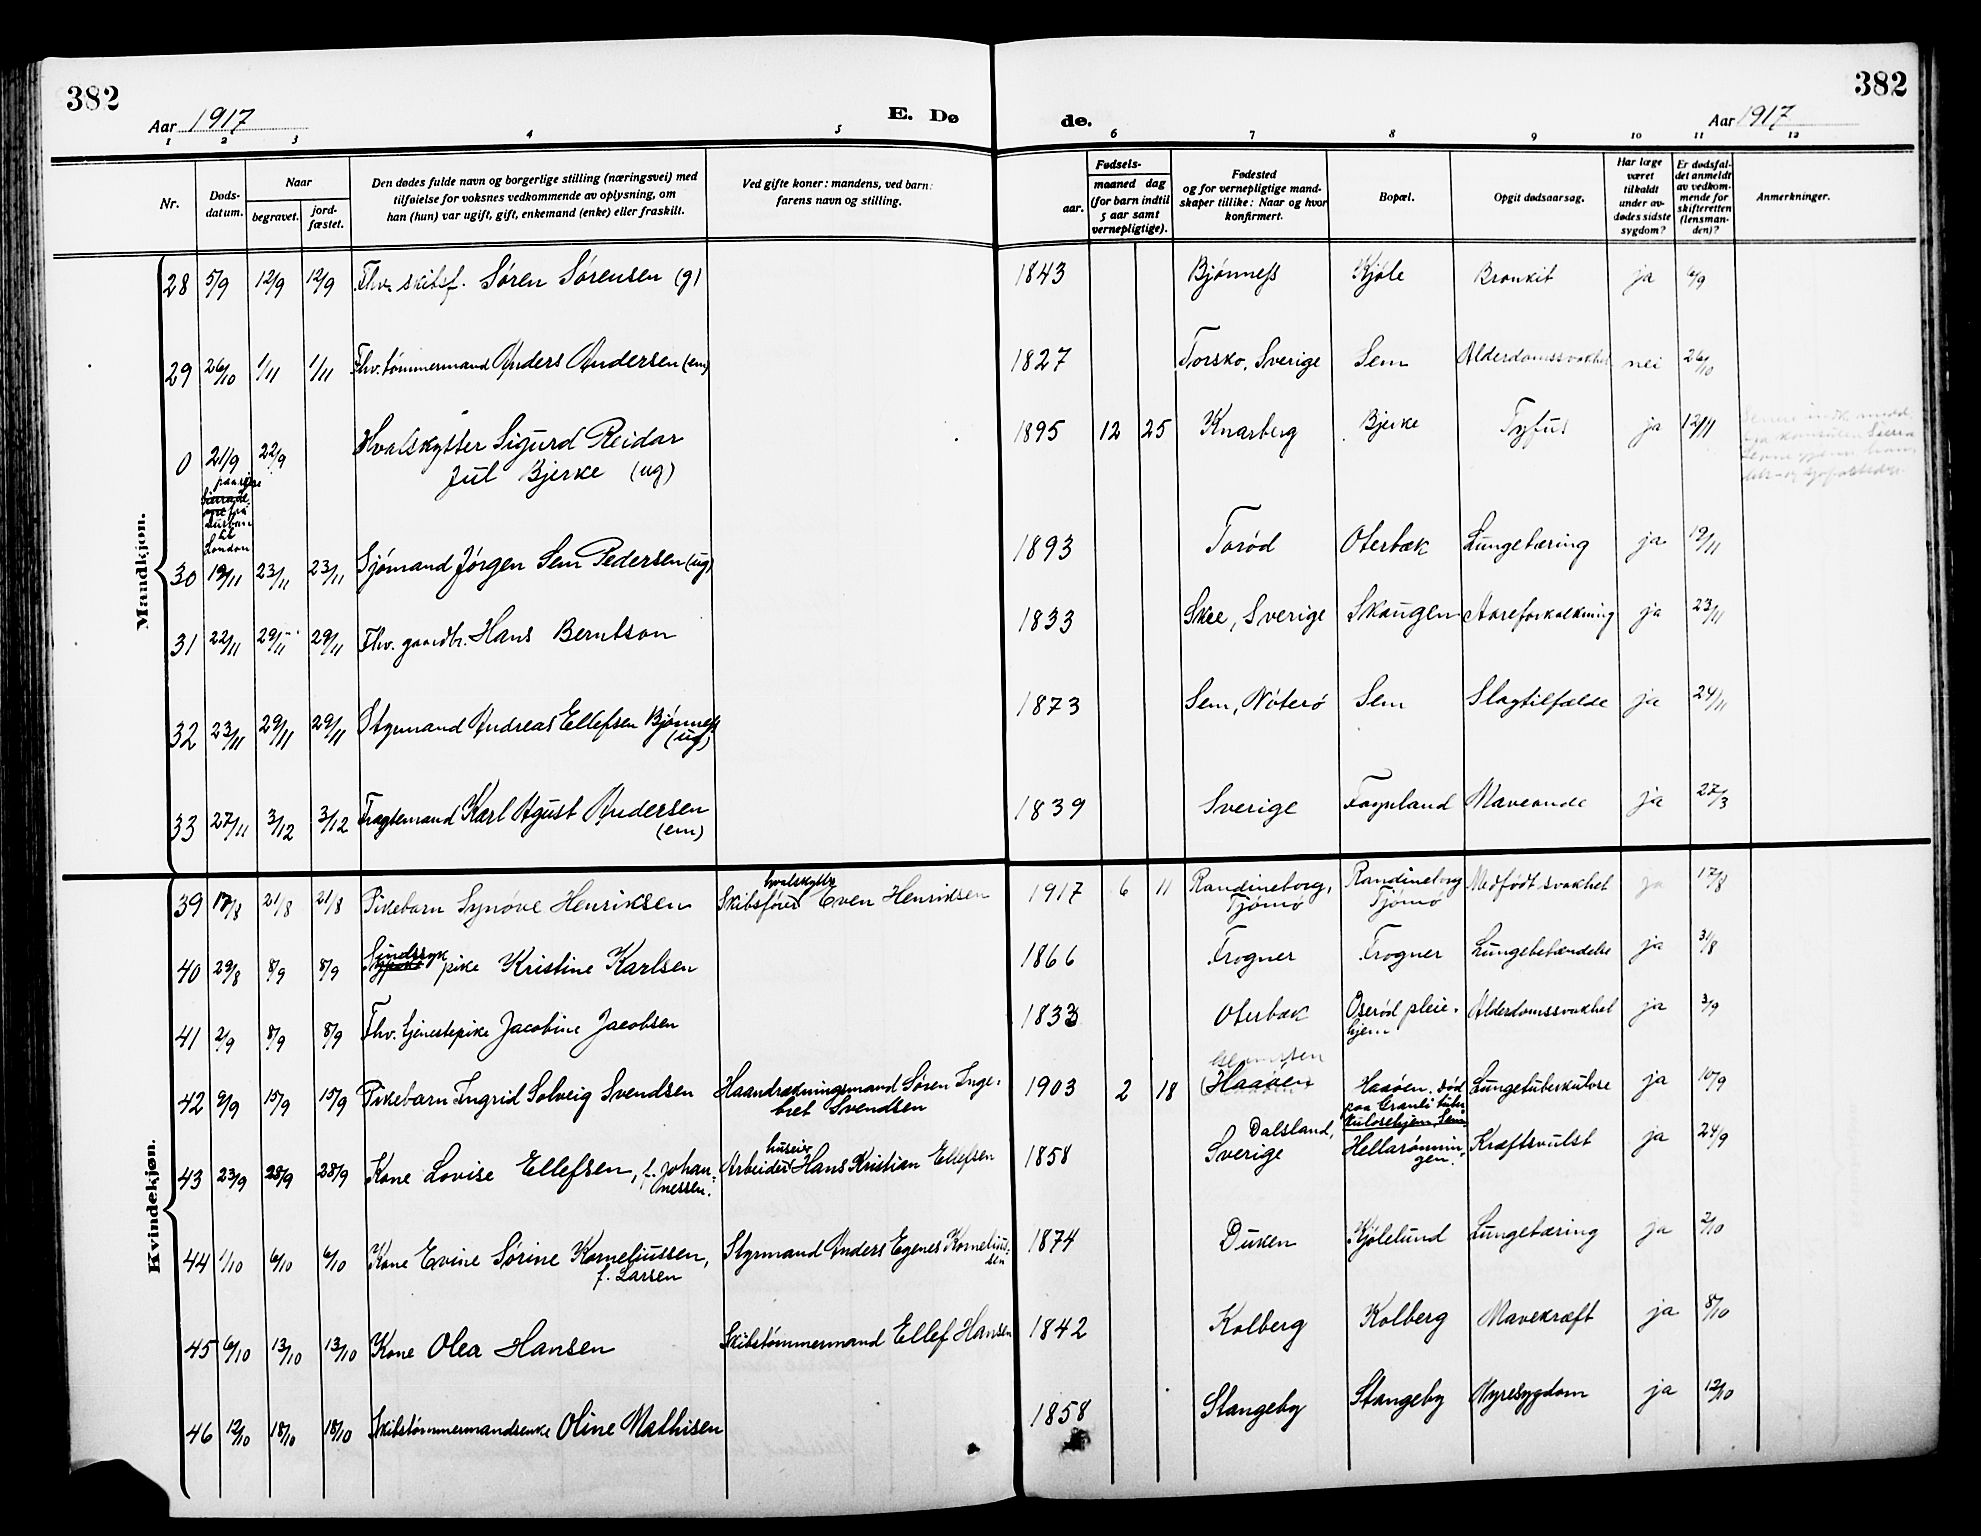 382
382
Aar 1917
E. Dø
de.
Aar 1917
1 2 3 4 5 6 7 8 9 10 11 12
Nr.
Døds-
datum.
Naar
begravet.
jord-
fæstet.
Den dødes fulde navn og borgerlige stilling (næringsvei) med
tilføielse for voksnes vedkommende av oplysning, om
han (hun) var ugift, gift, enkemand (enke) eller fraskilt.
Ved gifte koner: mandens, ved barn:
farens navn og stilling.
Fødsels-
aar.
maaned dag
(for barn indtil
5 aar samt
vernepligtige).
Fødested
og for vernepligtige mand-
skaper tillike: Naar og hvor
konfirmert.
Bopæl.
Opgit dødsaarsag.
Har læge
været
tilkaldt
under av-
dødes sidste
sygdom?
Er dødsfal-
det anmeldt
av vedkom-
mende for
skifteretten
(lensman-
den)?
Anmerkninger.
Mandkjøn.
28 5/9 12/9 12/9 Fhv. skibsf. Søren Sørensen (g) 1843 Bjønness Kjøle Bronkit ja 6/9
29 26/10 1/11 1/11 Fhv. tømmermand Anders Andersen (em) 1827 Torsko, Sverige Sem Alderdomssvakhet nei 26/10
0 21/9 22/9 Hvalskytter Sigurd Reidar 1895 12 25 Knarberg Bjerke Tyfus ja 12/11
Jul Bjerke (ug)
paa reise
fra
Durban
til
London
30 19/11 23/11 23/11 Sjømand Jørgen Sem Pedersen (ug) 1893 Torød Oterbæk Lungetæring ja 19/11
31 22/11 29/11 29/11 Fhv. gaardbr. Hans Berntson 1833 Skee, Sverige Skaugen Aareforkalkning ja 23/11
32 23/11 29/11 29/11 Styrmand Andreas Ellefsen Bjønness 1873 Sem, Nøterø Sem Slagtilfælde ja 24/11
(ug)
33 27/11 3/12 3/12 Fragtemand Karl Agust Andersen 1839 Sverige Fagnland Maveonde ja 27/3
(em)
Kvindekjøn.
39 17/8 21/8 21/8 Pikebarn Synøve Henriksen Skibsfører hvalskytter Even Henriksen 1917 6 11 Randineborg, Tjømø Randineborg Tjømø Medfødt svakhet ja 17/8
40 29/8 8/9 8/9 Sindssyk pike Kristine Karlsen 1866 Frogner Frogner Lungebetændelse ja 31/8
41 2/9 8/9 8/9 Fhv. tjenestepike Jacobine Jacobsen 1833 Oterbæk Oserød pleie-
hjem Alderdomssvakhet ja 3/9
42 9/9 15/9 15/9 Pikebarn Ingrid Solveig Svendsen Haandrækningsmand Søren Inge-
bret Svendsen 1903 2 18 Haaøen Haaøen, død
paa Granli tuber-
kulosehjem, Sem Lungetuberkulose ja 10/9
43 23/9 28/9 28/9 Kone Lovise Ellefsen, f. Johan-
nessen. Arbeider huseier Hans Kristian Ellefsen 1858 Dalsland,
Sverige Hellarønnin-
gen. Kræftsvulst ja 24/9
44 1/10 6/10 6/10 Kone Evine Sørine Korneliussen,
f. Larsen Styrmand Anders Egenes Kornelius-
sen 1874 Duken Kjølelund Lungetæring ja 2/10
45 6/10 13/10 13/10 Kone Olea Hansen Skibstømmermand Ellef Hansen 1842 Kolberg Kolberg Mavekræft ja 8/10
46 12/10 18/10 18/10 Skibstømmermandsenke Oline Mathisen 1858 Stangeby Stangeby Nyresygdom ja 12/10